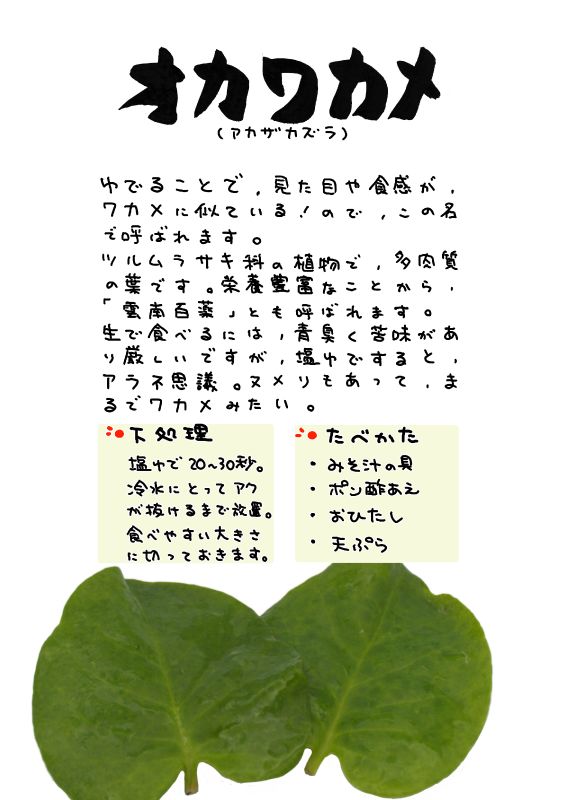 オカワカメ
(アカザカズラ)
ゆでることで,見た目や食感が,
ワカメに似ている!ので,この名
で呼ばれます。
ツルムラサキ科の植物で,多肉質
の葉です。栄養豊富なことから,
「雲南百薬」とも呼ばれます。
生で食べるには,青臭く苦味があ
り厳しいですが,塩ゆですると,
アラ不思議。ヌメリもあって,ま
るでワカメみたい。
下処理
塩ゆで20~30秒。
冷水にとってアク
が抜けるまで放置。
食べやすい大きさ
に切っておきます。
たべかた
・みそ汁の具
・ポン酢あえ
・おひたし
・天ぷら